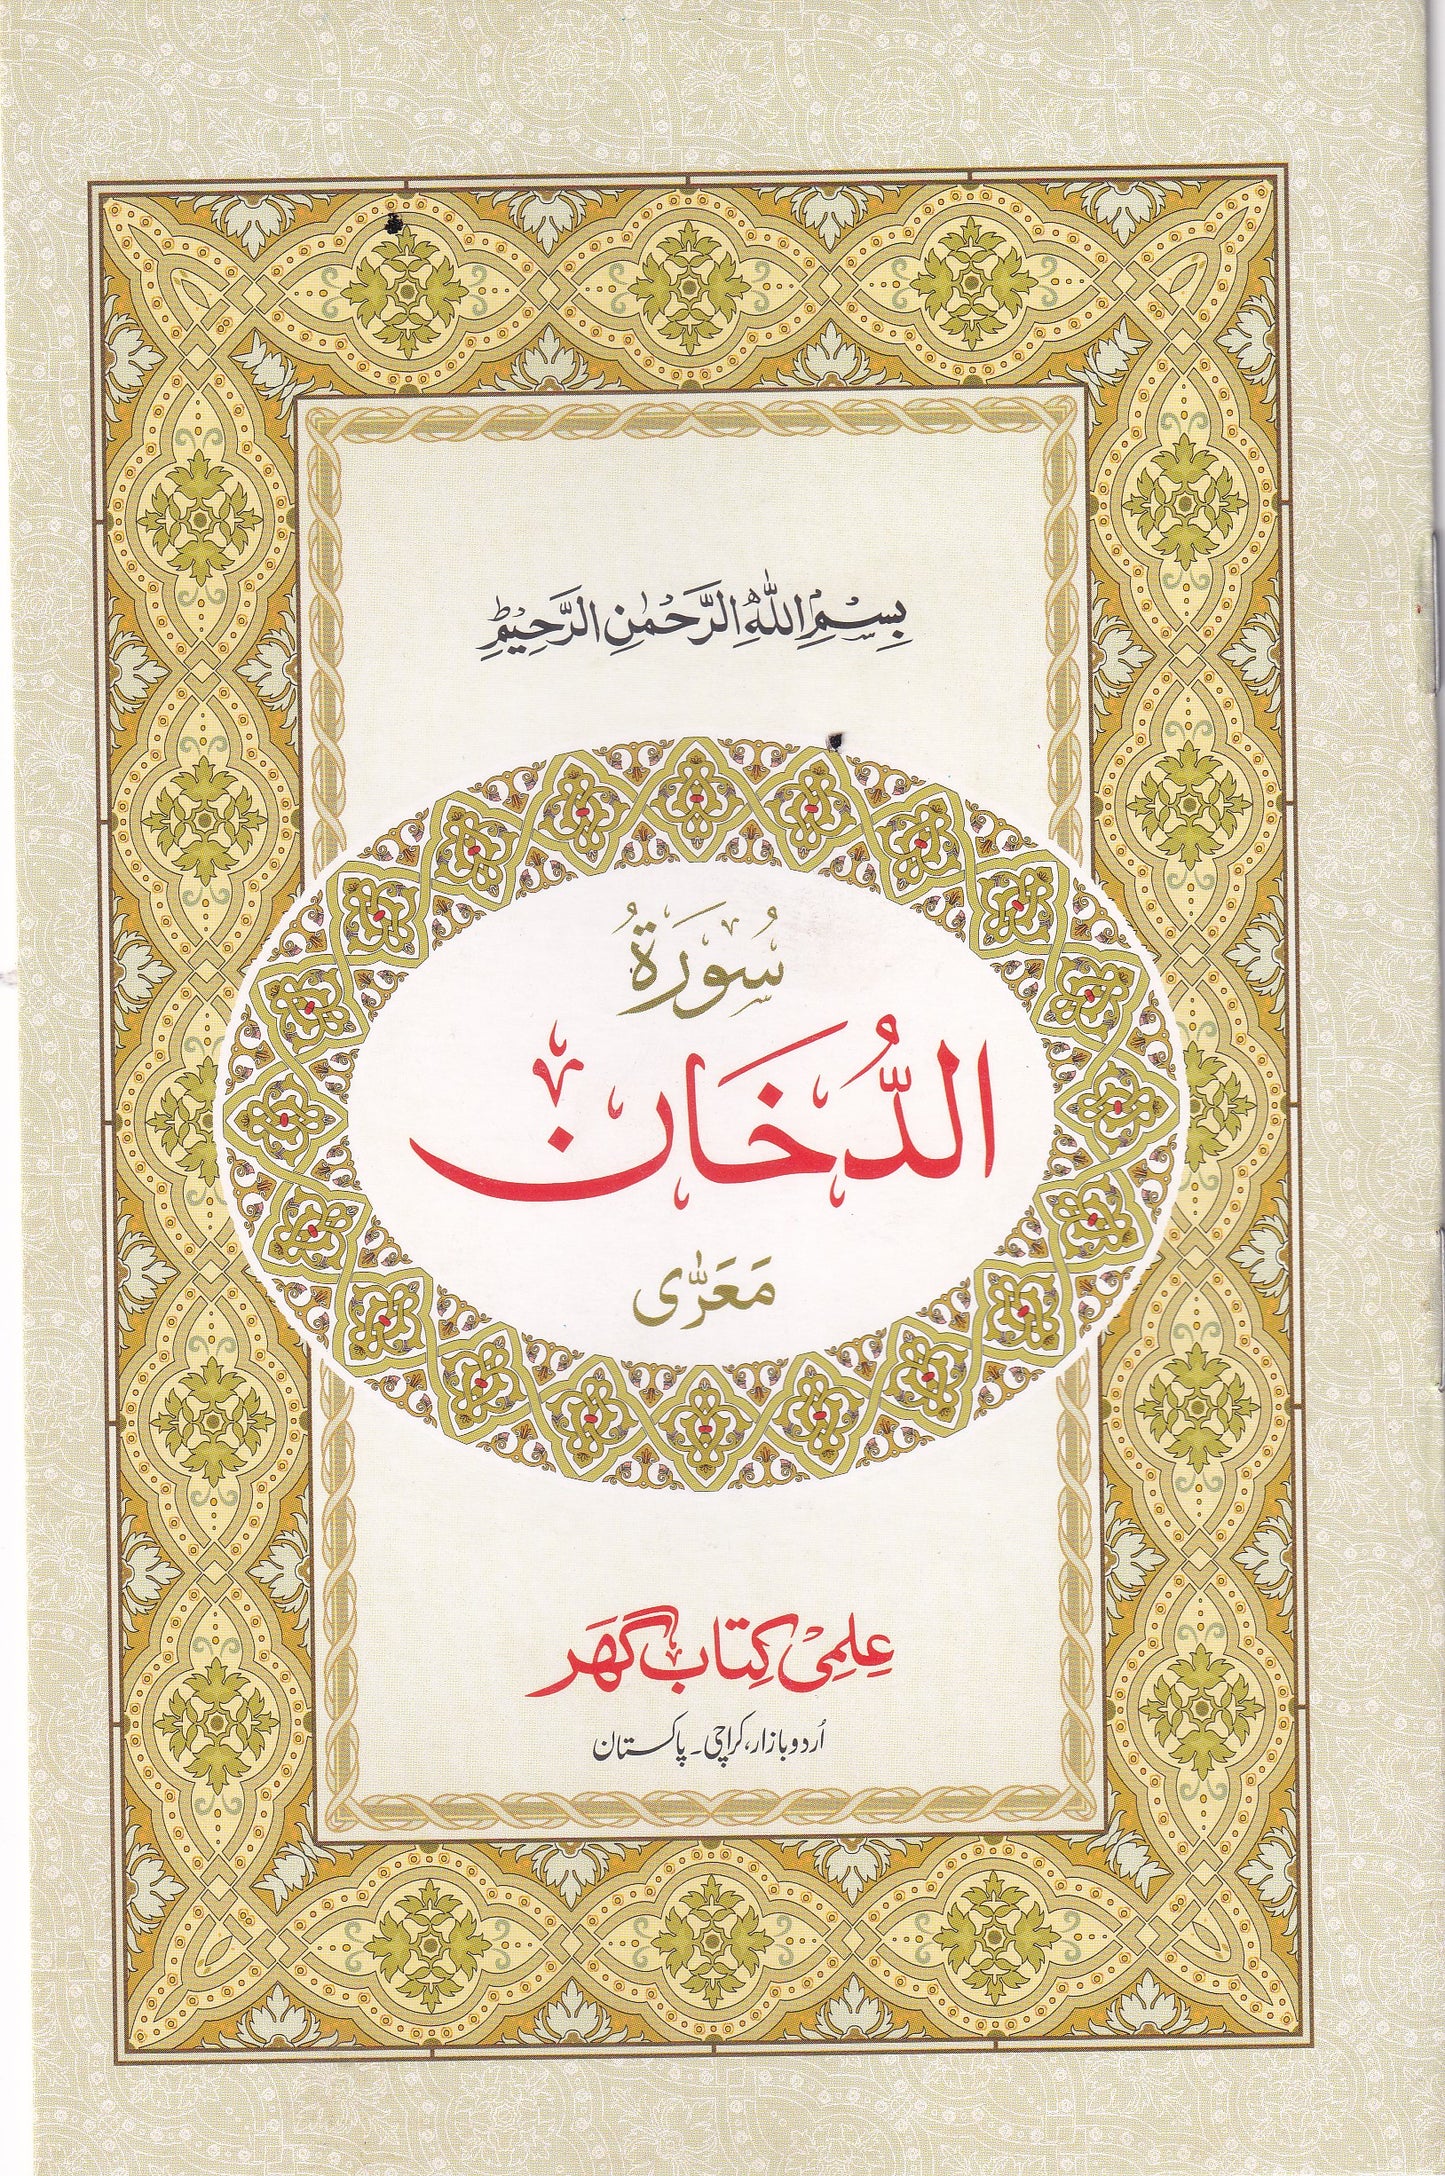 بِسْمِ اللّٰهِ الرَّحْمٰنِ الرَّحِيْمِ ؕ
سُورَةُ
الدُّخَان
مَعَرّٰی
عِلمِیْ کِتَاب گھَر
اُردو بازار، کراچی ۔ پاکستان